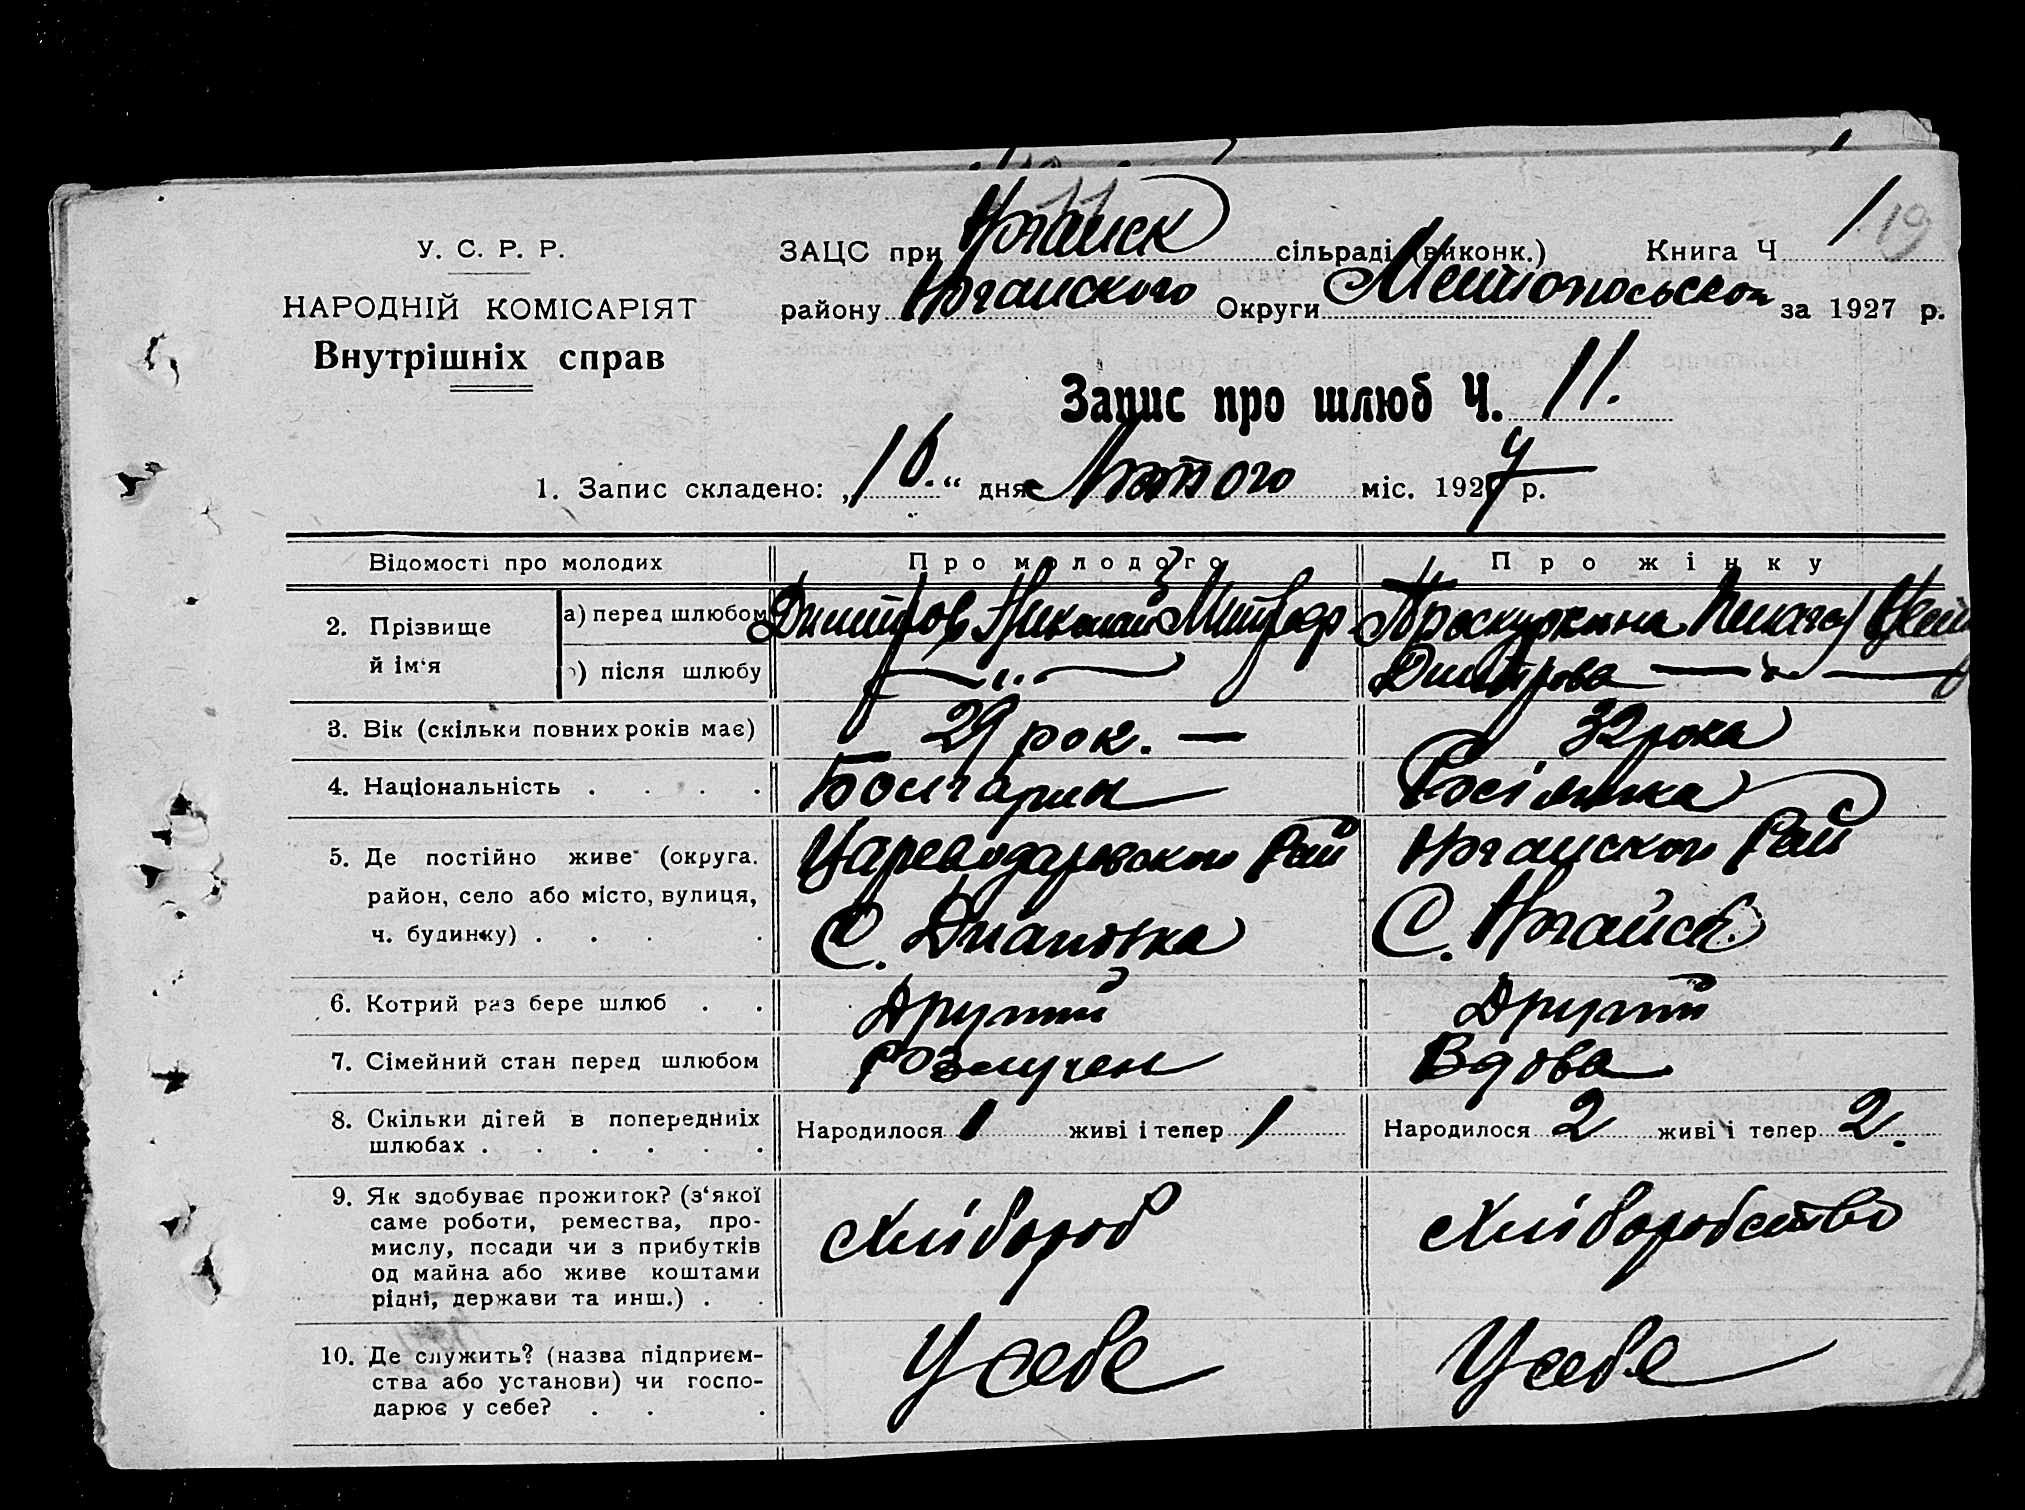 У. С. Р. Р.
НАРОДНІЙ КОМІСАРІЯТ
Внутрішніх справ
ЗАЦС при Ногайск сільраді (виконк.) Книга Ч 1 19
району Ногайского Округи за 1927 р.
Запис про шлюб Ч. 11.
1. Запис складено: „16.“ дня Лютого міс. 1927 р.
Відомості про молодих
Про молодого
Про жінку
2. Прізвище й ім‘я
а) перед шлюбом
Димитров Николай Митроф
Проскурина Пелагея
б) після шлюбу
— „ —
Димитрова — „ —
3. Вік (скільки повних років має)
29 рок. —
32 рока
4. Національність . . . .
Болгарин
Росіянка
5. Де постійно живе (округа.
район, село або місто, вулиця,
ч. будинку) . . . .
Цареводаровского Рай
С. Диановка
Ногайского Рай
С. Ногайск
6. Котрий раз бере шлюб . .
Другий
Другий
7. Сімейний стан перед шлюбом
Розлучен
Вдова
8. Скільки дітей в попередніх
шлюбах . . . . . .
Народилося 1 живі і тепер 1
Народилося 2 живі і тепер 2.
9. Як здобуває прожиток? (з‘якої
саме роботи, ремества, про-
мислу, посади чи з прибутків
од майна або живе коштами
рідні, держави та инш.) . .
Хлібороб
Хліборобство
10. Де служить? (назва підприєм-
ства або установи) чи госпо-
дарює у себе? . . .
У себе
У себе